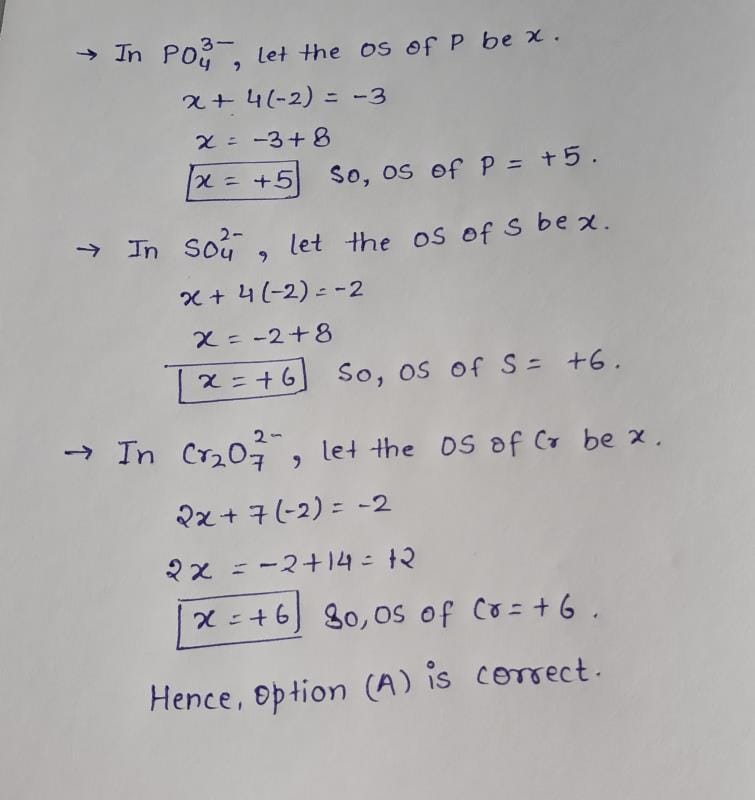 → In PO₄³⁻, let the OS of P be x.
x + 4(-2) = -3
x = -3+8
x = +5 So, OS of P = +5.
→ In SO₄²⁻, let the OS of S be x.
x + 4(-2) = -2
x = -2+8
x = +6 So, OS of S = +6.
→ In Cr₂O₇²⁻, let the OS of Cr be x.
2x + 7(-2) = -2
2x = -2+14 = 12
x = +6 So, OS of Cr = +6.
Hence, Option (A) is correct.